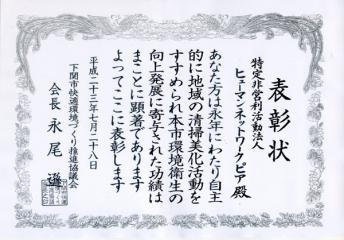 表彰状
特定非営利活動法人
ヒューマンネットワークピア殿
あなた方は永年にわたり自主
的に地域の清掃美化活動を
すすめられ本市環境衛生の
向上発展に寄与された功績は
まことに顕著であります
よってここに表彰します
平成二十三年七月二十八日
下関市快適環境づくり推進協議会
会長 永尾 遜